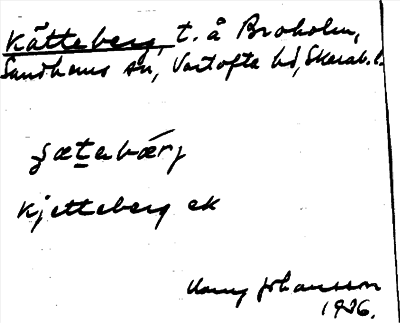 Kätteberg, t. å Broholm,
Sandhems sn, Vartofta hd, Skarab. l.
ʒætabærj
Kjetteberg ek
Johansson
1926.